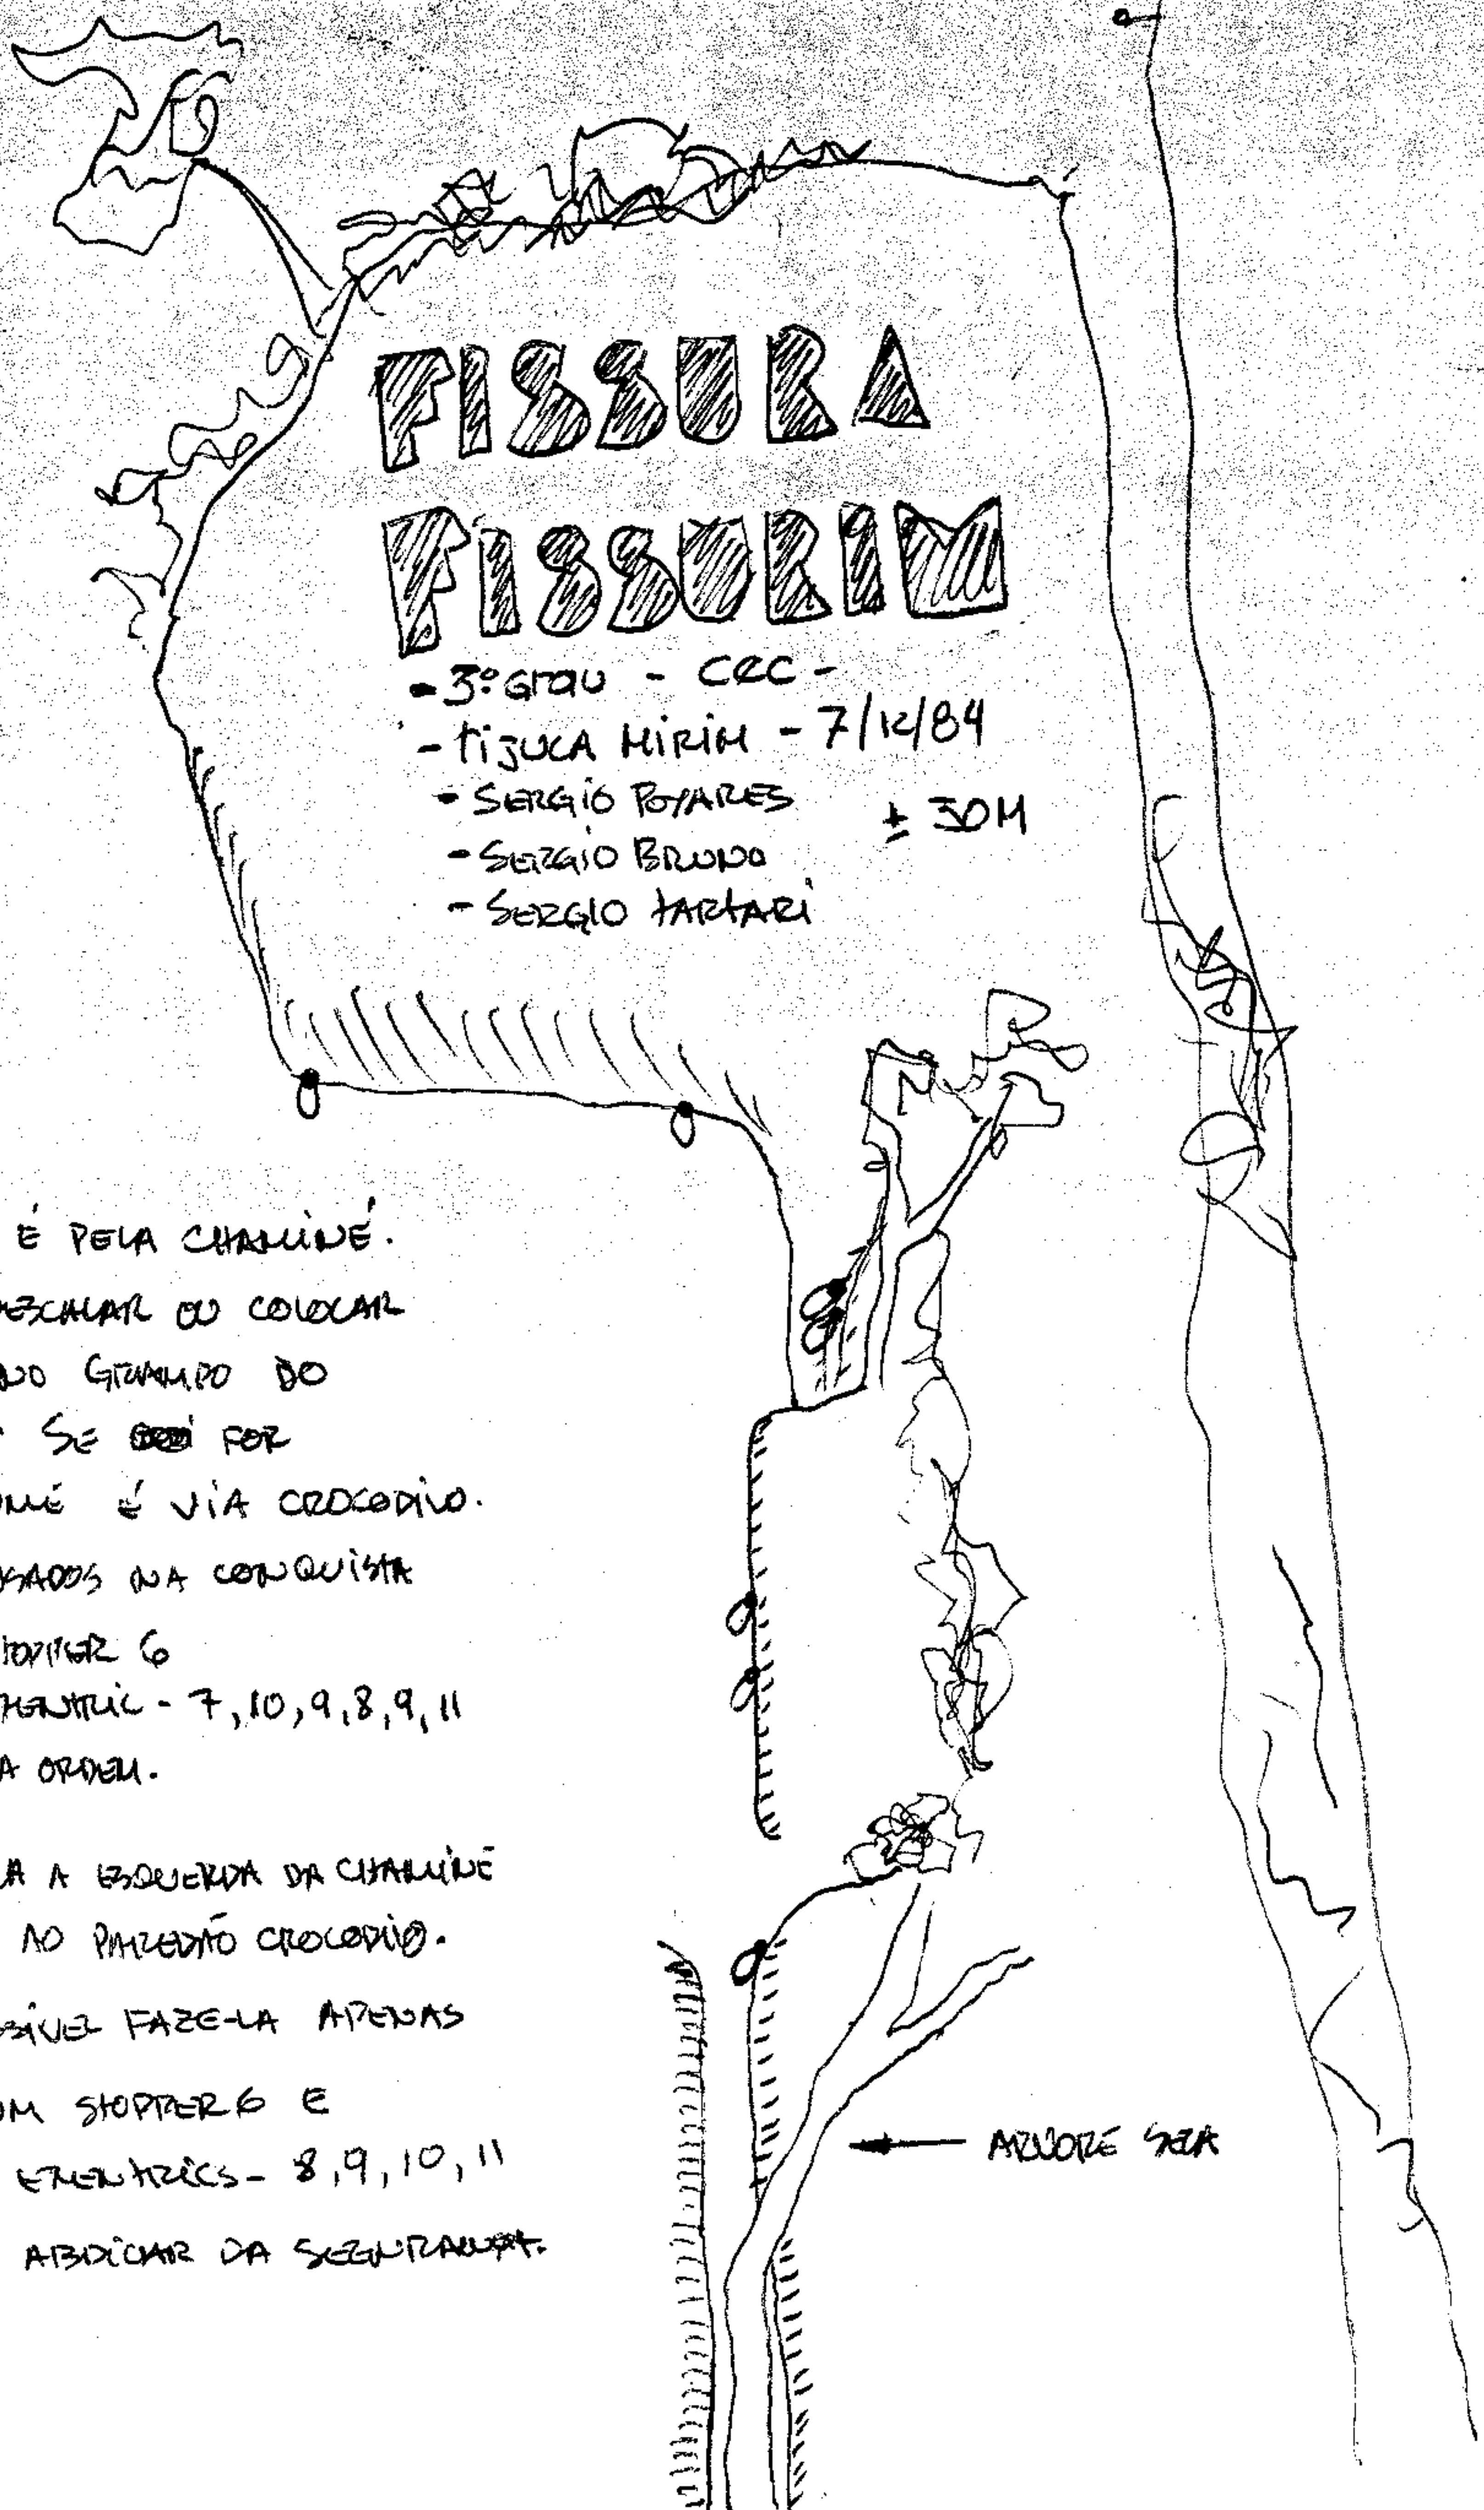 FISSURA
FISSURIM
- 3º grau - CEC -
- tijuca MIRIM - 7/12/84
- SERGIO POYARES
± 30M
- SERGIO BRUNO
- SERGIO TARTARI
É PELA CHAMINÉ.
ESCALAR OU COLOCAR
NO GRAMPO DO
SE FOR
É VIA CROCODILO.
USADOS NA CONQUISTA
STOPPER 6
- 7, 10, 9, 8, 9, 11
A ORDEM.
A ESQUERDA DA CHAMINÉ
AO PAREDÃO CROCODILO.
SÍVEL FAZE-LA APENAS
OM STOPPER 6 E
EXENTRICS - 8, 9, 10, 11
ARVORE SECA
ABDICAR DA SEGURANÇA.